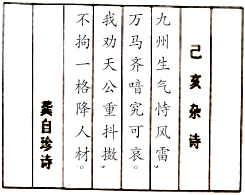 己亥杂诗
九州生气恃风雷，
万马齐喑究可哀。
我劝天公重抖擞，
不拘一格降人材。
龚自珍诗